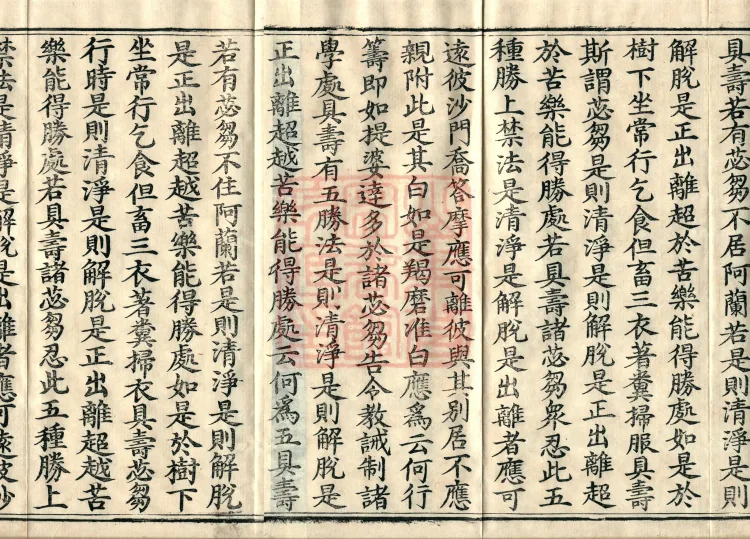 具壽若有苾芻不居阿蘭若是則清淨是則
解脫是正出離超於苦樂能得勝處如是於
樹下坐常行乞食但畜三衣著糞掃服具壽
斯謂苾芻是則清淨是則解脫是正出離超
於苦樂能得勝處若具壽諸苾芻衆忍此五
種勝上禁法是清淨是解脫是出離者應可
遠彼沙門喬荅摩應可離彼與其別居不應
親附此是其白如是羯磨准白應爲云何行
籌即如提婆達多於諸苾芻告令教誡制諸
學處具壽有五勝法是則清淨是則解脫是
正出離超越苦樂能得勝處云何爲五具壽
若有苾芻不住阿蘭若是則清淨是則解脫
是正出離超越苦樂能得勝處如是於樹下
坐常行乞食但畜三衣著糞掃衣具壽苾芻
行時是則清淨是則解脫是正出離超越苦
樂能得勝處若具壽諸苾芻忍此五種勝上
禁法是清淨是解脫是出離者應可遠彼沙